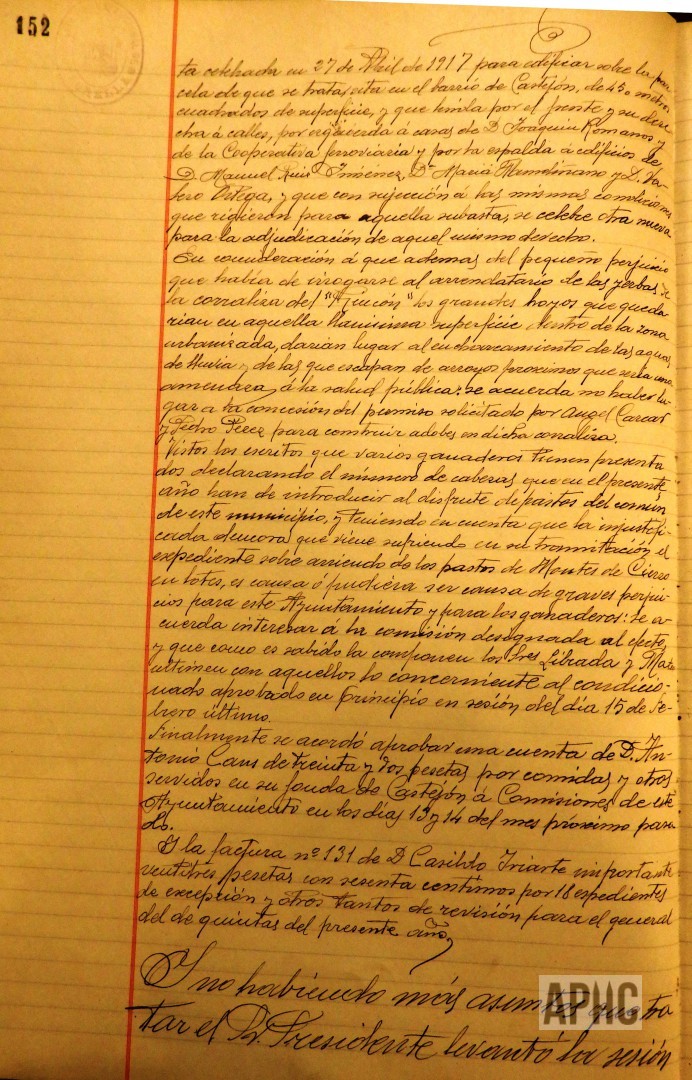 152
ta celebrada en 27 de Abril de 1917 para edificar sobre la par
cela de que se trata, sita en el barrio de Castejón, de 450 metros
cuadrados de superficie, y que linda por el frente y su dere
cha á calles, por izquierda á casas de D. Joaquin Romanos y
de la Cooperativa ferroviaria y por la espalda á edificios de
D. Manuel Ruis Jiménez, Dª Maria Armiñano y D. Va
lero Ortega, y que con sujeción á las mismas condiciones
que rigieron para aquella subasta, se celebre otra nueva
para la adjudicación de aquel mismo derecho.
En consideración á que ademas del pequeño perjuicio
que habia de irrogarse al arrendatario de las yerbas de
la corraliza del "Ajincón" los grandes hoyos que queda
rian en aquella llanisima superficie dentro de la zona
urbanizada, darian lugar al encharcamiento de las aguas
de lluvia y de las que escapan de arroyos proximos que seria una
amenaza á la salud pública: se acuerda no haber lu
gar a la concesión del permiso solicitado por Angel Carcar
y Pedro Perez para construir adobes en dicha corraliza.
Vistos los escritos que varios ganaderos tienen presenta
dos declarando el número de cabezas que en el presente
año han de introducir al disfrute de pastos del comun
de este municipio, y teniendo en cuenta que la injustifi
cada demora que viene sufriendo en su tramitación el
expediente sobre arriendo de los pastos de Montes de Cierzo
en lotes, es causa ó pudiera ser causa de graves perjui
cios para este Ayuntamiento y para los ganaderos: se a
cuerda interesar á la comisión designada al efecto,
y que como es sabido la componen los Sres Librada y Mata
ultimen con aquellos lo concerniente al condicio
nado aprobado en principio en sesión del dia 15 de Fe
brero último.
Finalmente se acordó aprobar una cuenta de D. An
tonio Caus de treinta y dos pesetas por comidas y otros
servidos en su fonda de Castejón á Comisiones de este
Ayuntamiento en los dias 13 y 14 del mes próximo pasa
do.
Y la factura nº 131 de D Casildo Iriarte importante
veintitres pesetas con sesenta centimos por 18 espedientes
de excepción y otros tantos de revisión para el general
del de quintas del presente año,
Y no habiendo más asuntos que tra
tar el Sr. Presidente levantó la sesión
APHC